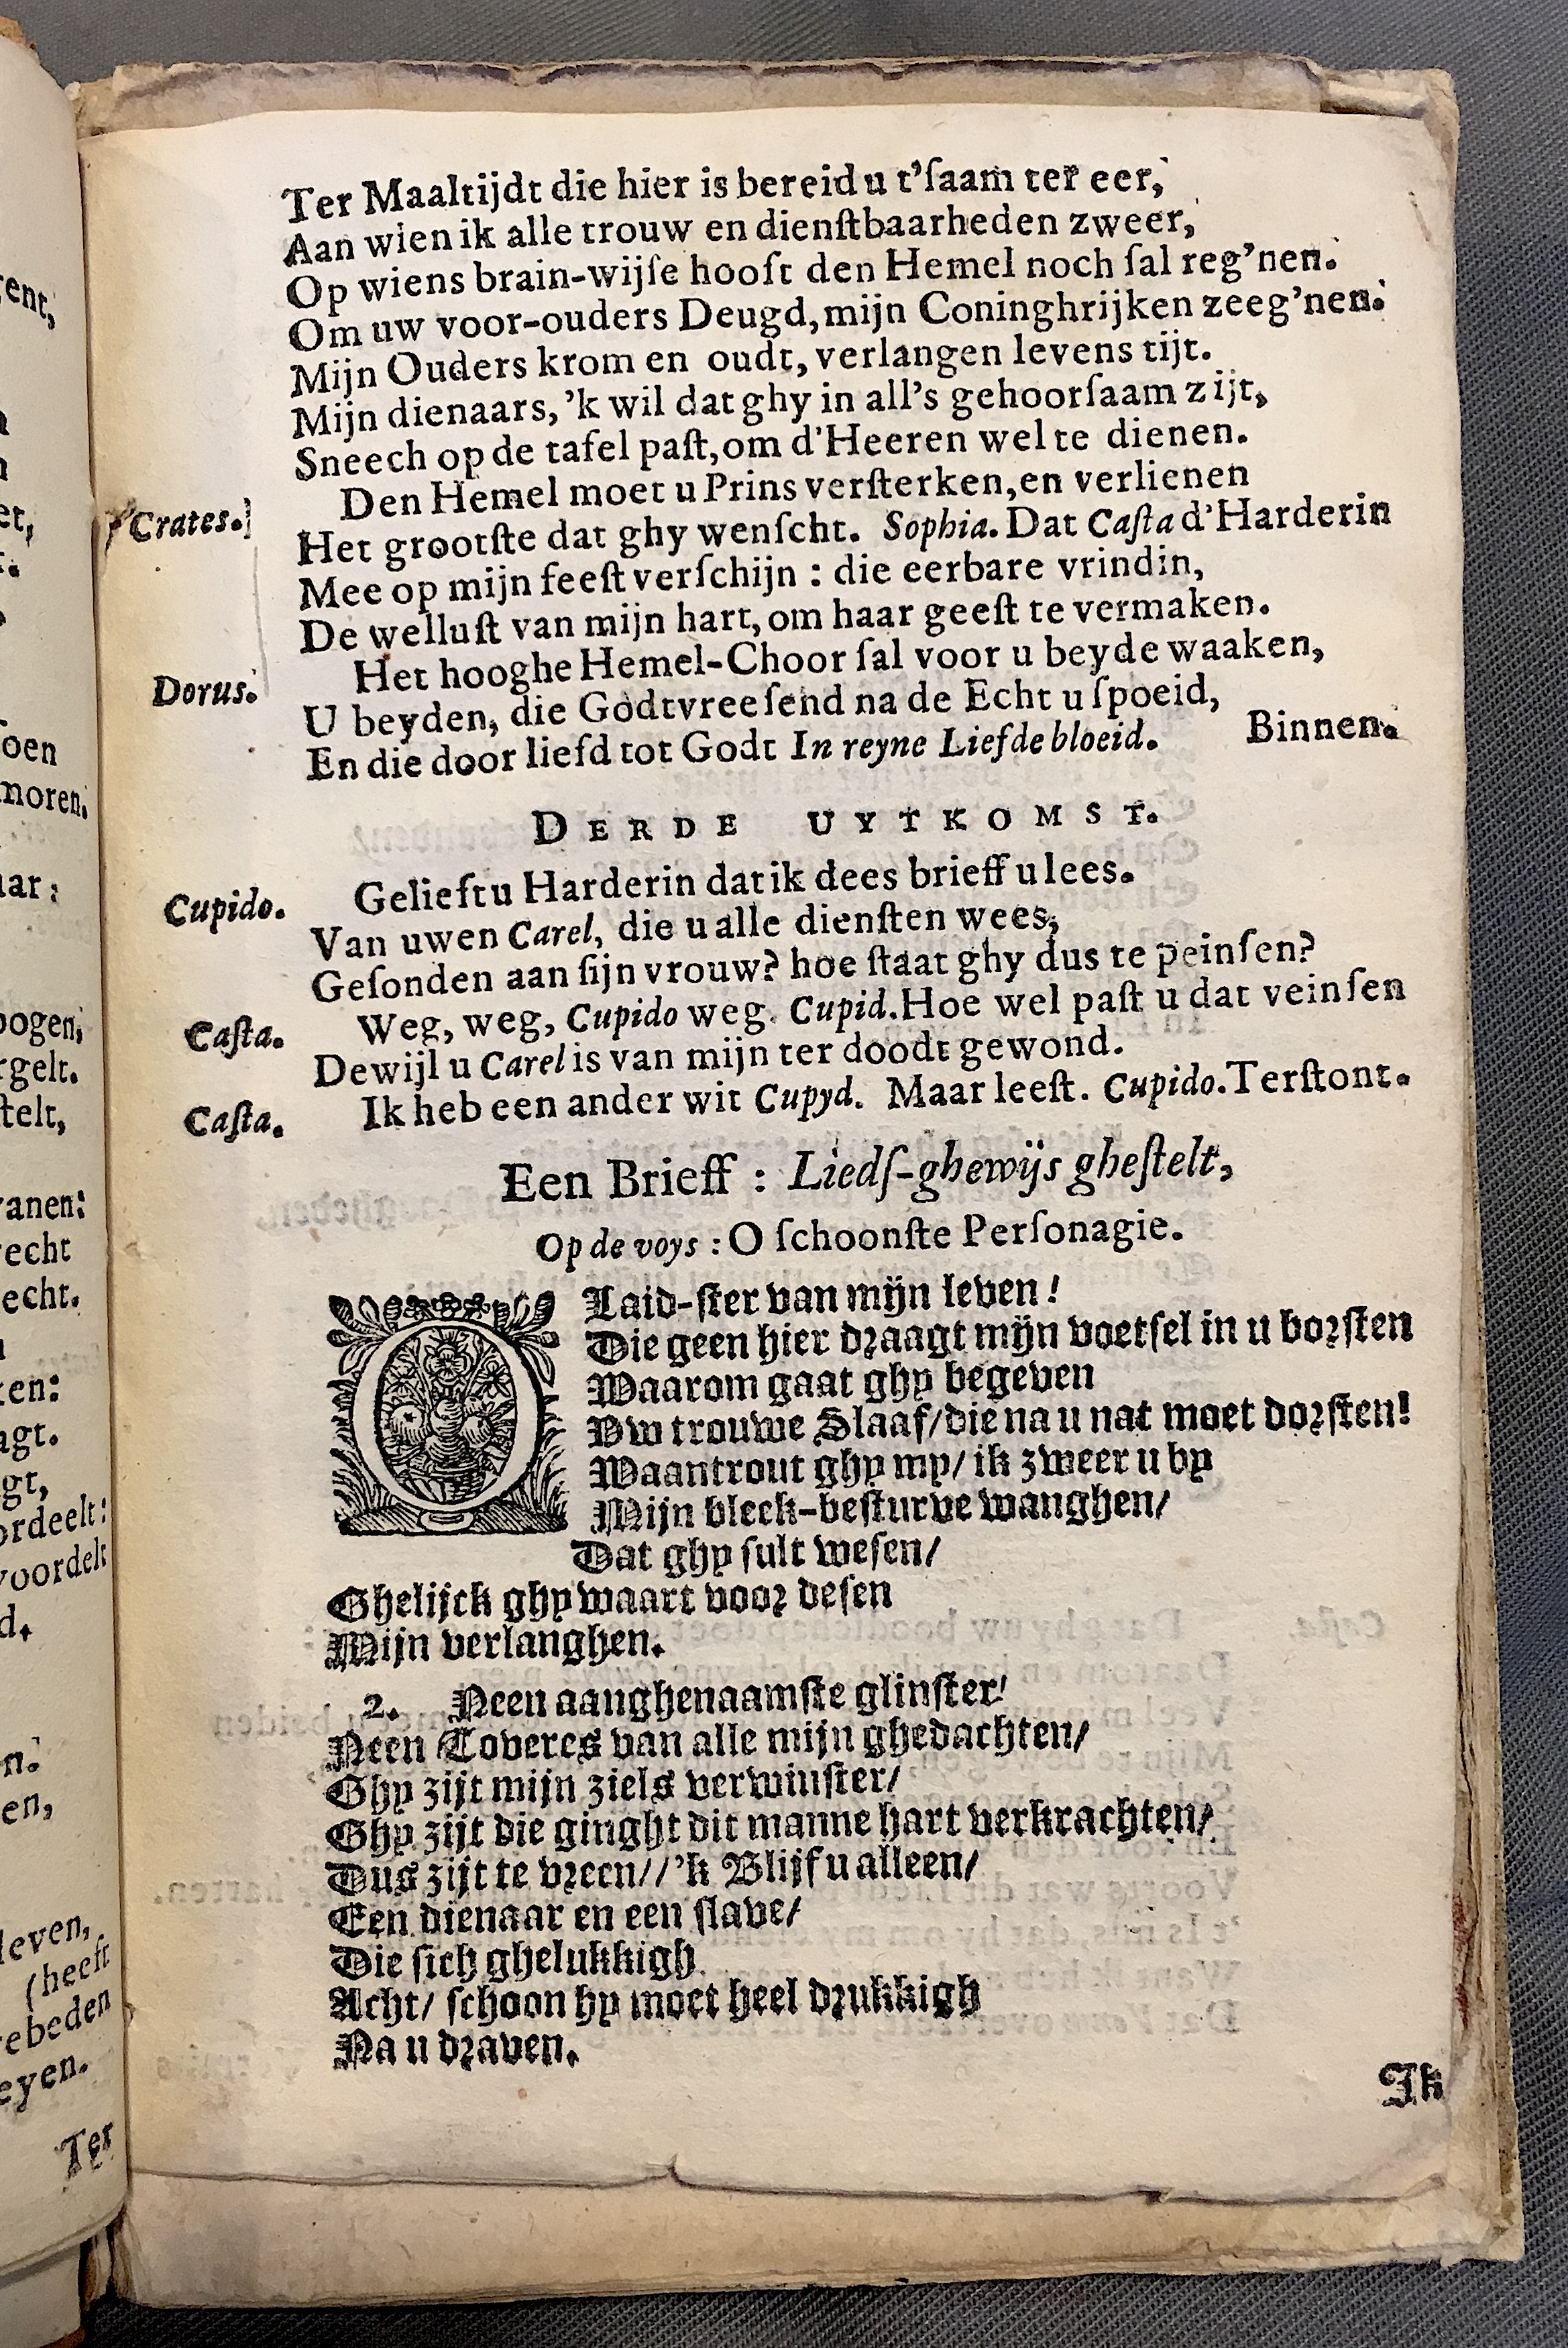 Ter Maaltijdt die hier is bereid u t'ſaam ter eer,
Aan wien ik alle trouw en dienſtbaarheden zweer,
Op wiens brain-wijſe hooft den Hemel noch ſal reg'nen.
Om uw voor-ouders Deugd, mijn Coninghrijken zeeg'nen.
Mijn Ouders krom en oudt, verlangen levens tijt.
Mijn dienaars, 'k wil dat ghy in all's gehoorſaam zijt,
Sneech op de tafel paſt, om d'Heeren wel te dienen.
Crates. Den Hemel moet u Prins verſterken, en verlienen
Het grootſte dat ghy wenſcht. Sophia. Dat Caſta d'Harderin
Mee op mijn feeſt verſchijn : die eerbare vrindin,
De welluſt van mijn hart, om haar geeſt te vermaken.
Dorus. Het hooghe Hemel-Choor ſal voor u beyde waaken,
U beyden, die Godtvreeſend na de Echt u ſpoeid,
En die door liefd tot Godt In reyne Liefde bloeid. Binnen.
DERDE UYTKOMST.
Cupido. Gelieft u Harderin dat ik dees brieff u lees.
Van uwen Carel, die u alle dienſten wees,
Geſonden aan ſijn vrouw? hoe ſtaat ghy dus te peinſen?
Caſta. Weg, weg, Cupido weg. Cupid. Hoe wel paſt u dat veinſen
Dewijl u Carel is van mijn ter doodt gewond.
Caſta. Ik heb een ander wit Cupyd. Maar leeſt. Cupido. Terſtont.
Een Brieff : Liedſ-ghewijs gheſtelt,
Op de voys : O ſchoonſte Perſonagie.
O Laid-ſter van mijn leven!
Die geen hier draagt mijn voetſel in u borſten
Waarom gaat ghy begeven
Vw trouwe Slaaf/ die na u nat moet dorſten!
Waantrout ghy my/ ik zweer u by
Mijn bleek-beſturve wanghen/
Dat ghy ſult weſen/
Ghelijck ghy waart voor deſen
Mijn verlanghen.
2. Neen aanghenaamſte glinſter/
Neen Toveres van alle mijn ghedachten/
Ghy zijt mijn ziels verwinſter/
Ghy zijt die ginght dit manne hart verkrachten/
Dus zijt te vreen// 'k Blijf u alleen/
Een dienaar en een ſlave/
Die ſich ghelukkigh
Acht/ ſchoon hy moet heel drukkigh
Na u draven.
Ik